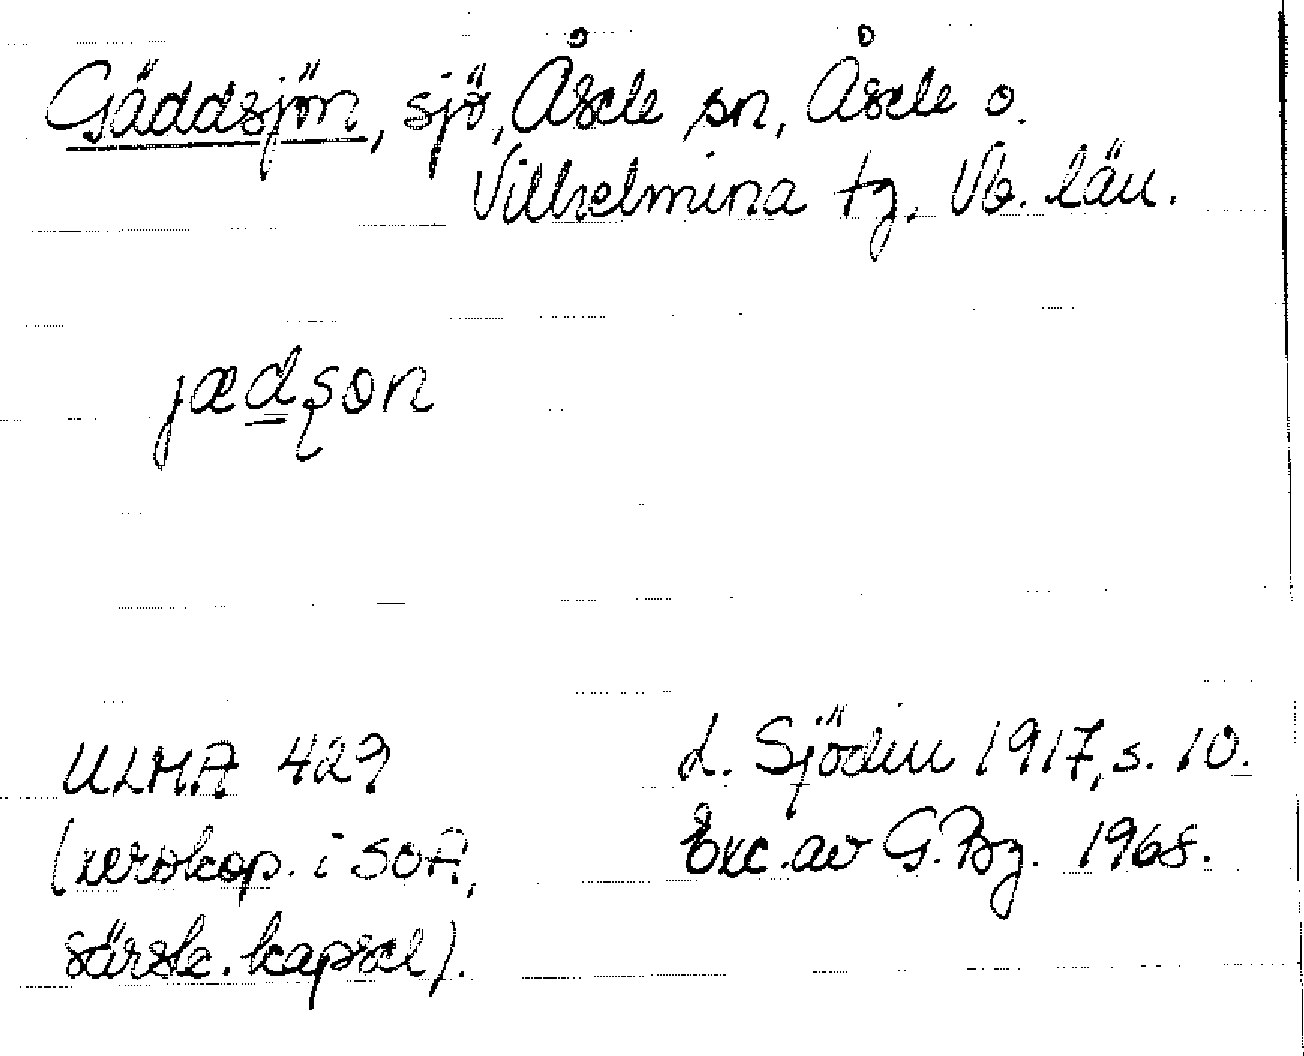 Gäddsjön, sjö, Åsele sn, Åsele o.
Vilhelmina tg, Vb. län.
jædʂon
ULMA 429
(xerokop. i SOA,
särsk. kapsel).
L. Sjödin 1917, s. 10.
Exc. av G. Bg. 1968.